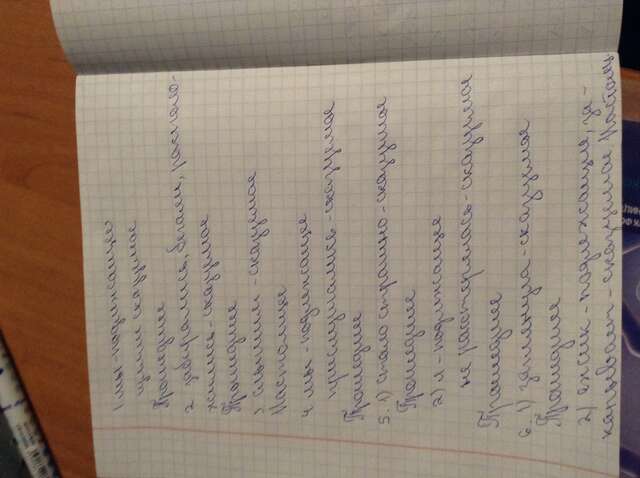 1 мы - подлежащее
ушли сказуемое
Прошедшее
2 забирались, бегали, располо-
жились - сказуемое
Прошедшее
3 слышим - сказуемое
Настоящее
4 мы - подлежащее
прислушались - сказуемое
Прошедшее
5. 1) стало страшно - сказуемое
Прошедшее
2) я - подлежащее
не растерялась - сказуемое
Прошедшее
6. 1) заглянула - сказуемое
Прошедшее
2) ежик - подлежащие, за-
капывает - сказуемое Настоящ